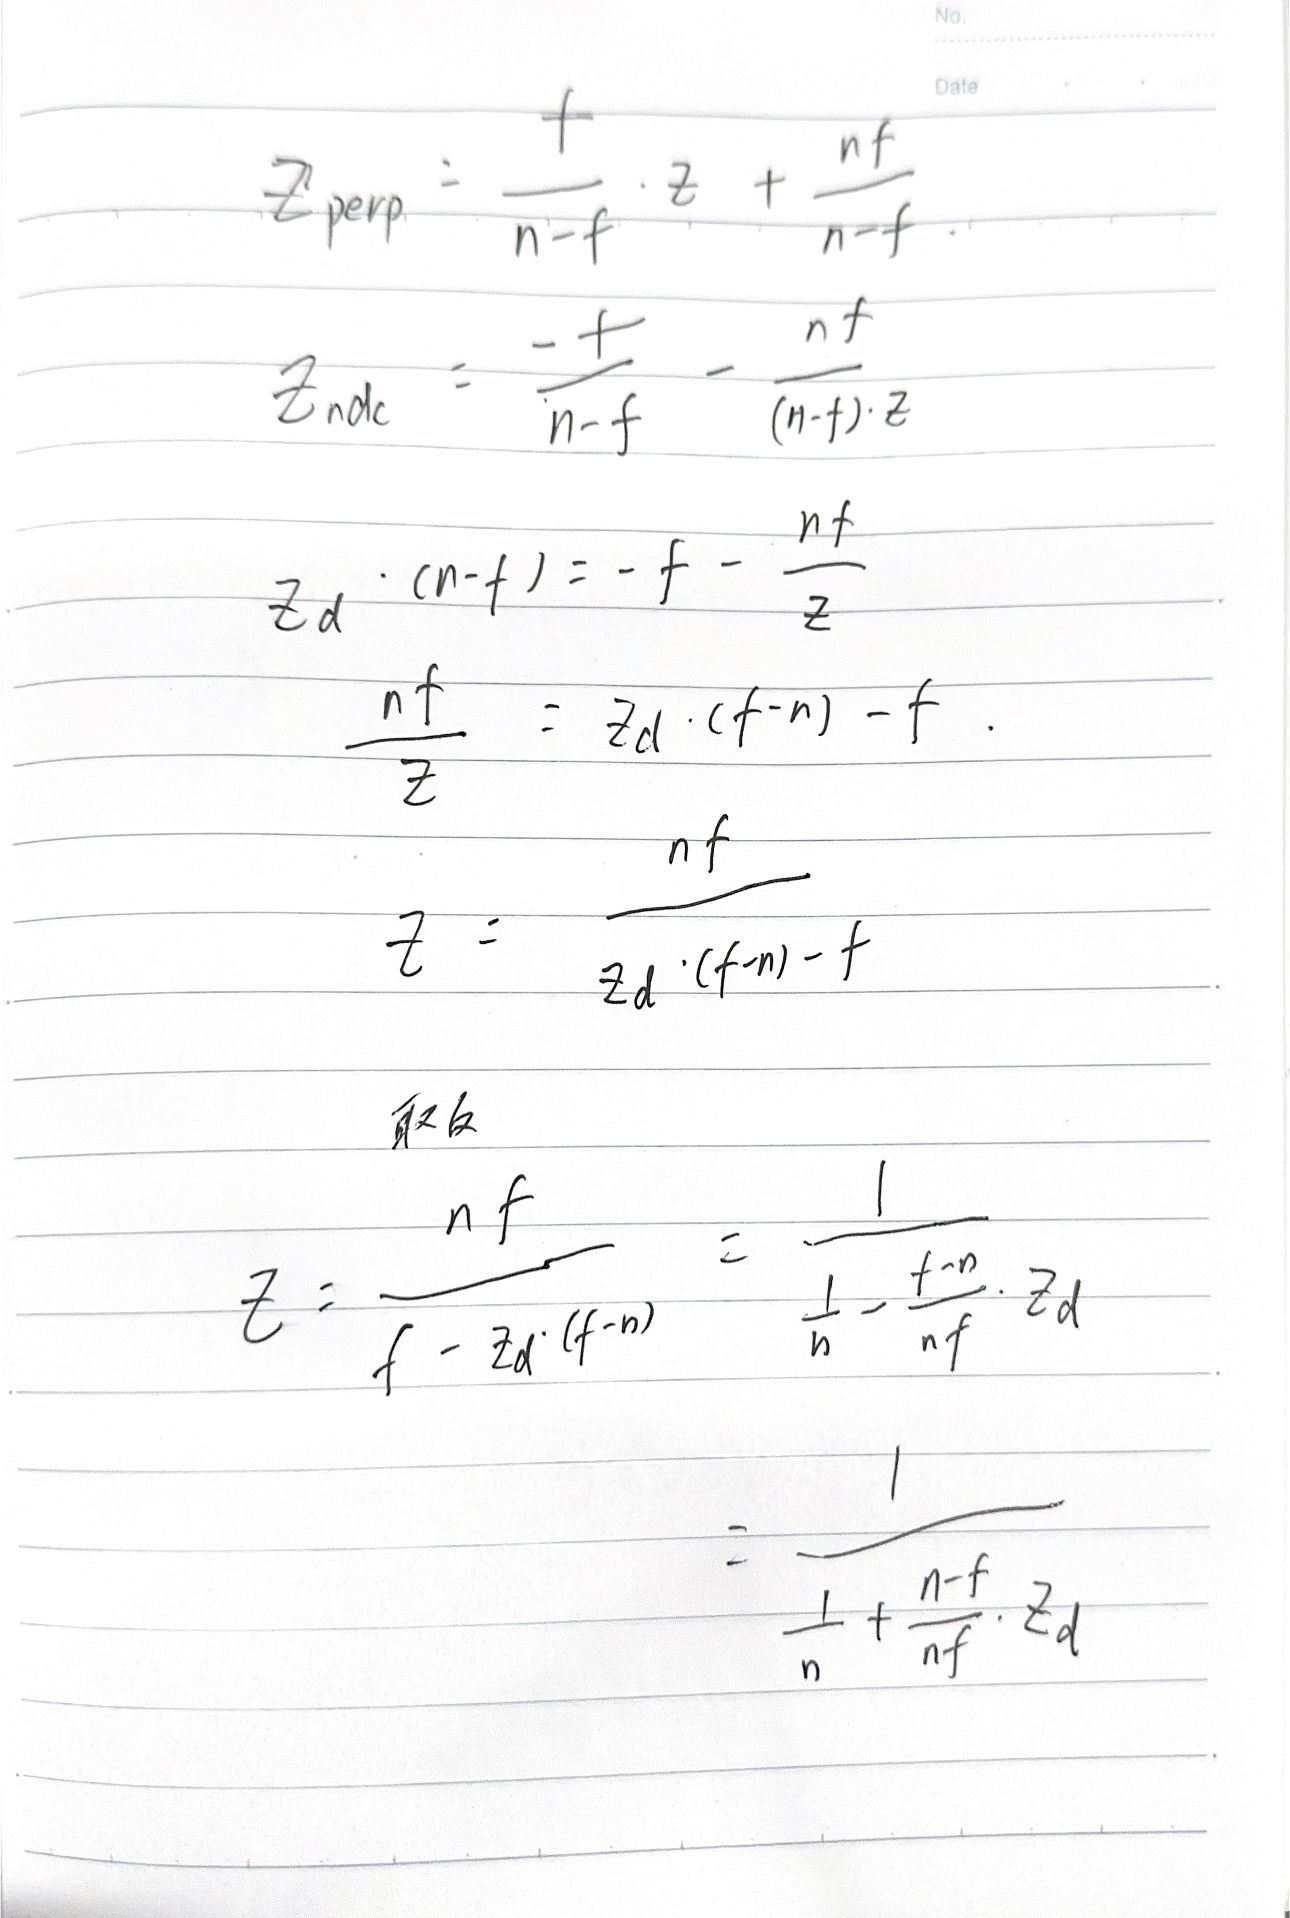 No.
Date
Z_perp = f/(n-f) · z + nf/(n-f).
Z_ndc = -f/(n-f) - nf/((n-f)·z)
Z_d · (n-f) = -f - nf/z
nf/z = Z_d · (f-n) - f.
z = nf/(Z_d · (f-n) - f)
取反
z = nf/(f - Z_d · (f-n)) = 1/(1/n - (f-n)/nf · Z_d)
= 1/(1/n + (n-f)/nf · Z_d)